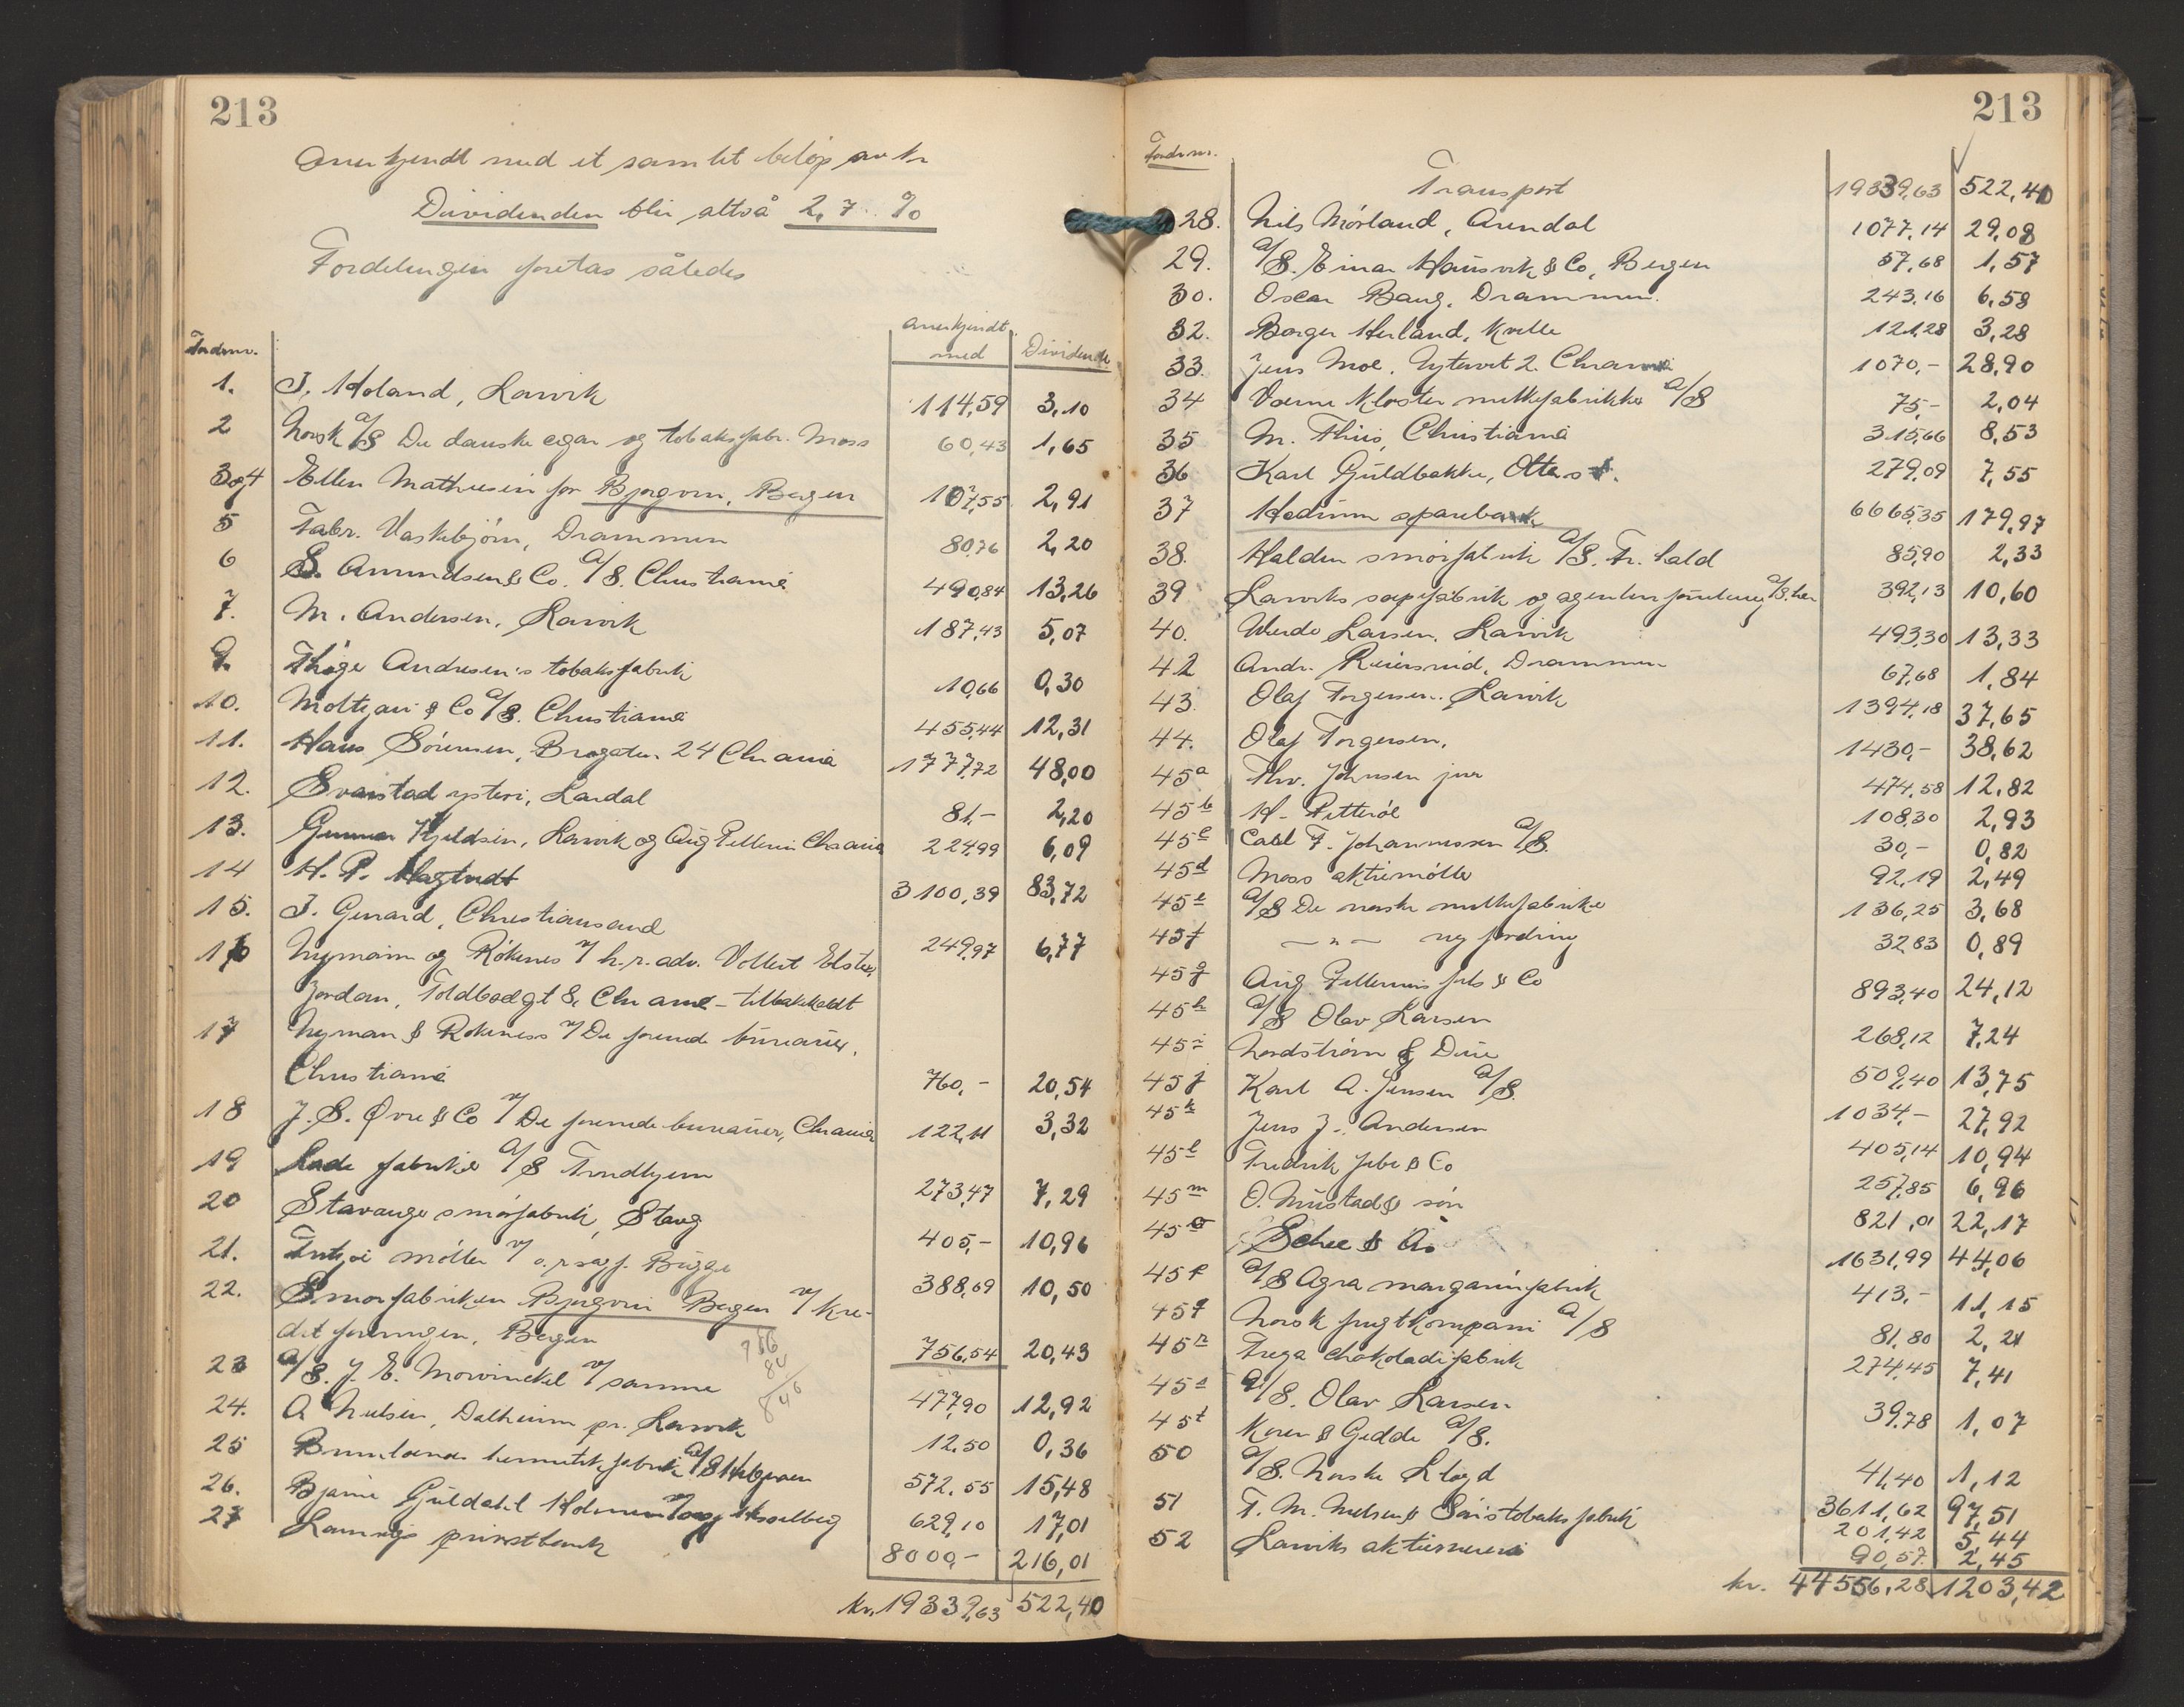 213
Anerkjendt med et samlet beløp av kr
Dividenden blir altså 2,7 %
Fordelingen foretas således
Fordr.nr. anerkjendt med Dividende
1. J. Holand, Larvik 114,59 3,10
2 Norsk A/S De danske cigar og tobaksfabr. Moss 60,43 1,65
3og4 Ellen Mathiesen for Bjørgvin, Bergen 107,55 2,91
5 Fabr. Vaskebjörn, Drammen 80,76 2,20
6 S. Amundsen & Co. A/S. Christiania 490,84 13,26
7. M. Andersen, Larvik 187,43 5,07
9. Thøger Andresen's tobaksfabrik 10,66 0,30
10. Moltzau & Co A/S. Christiania 455,44 12,31
11. Hans Sörensen, Brogaten 24 Chr ania 1777,72 48,00
12. Svarstad ysteri, Lardal 81,- 2,20
13. Gunnar Kjeldsen, Larvik og Aug Pellerin Chrania 224,99 6,09
14 H. P. 3100,39 83,72
15. J. Gerrard, Christiansand 249,97 6,77
16 Nyman og Rökenes v/ h.r.adv. Vollert Elster
Jordan, Toldbodgt 8, Chr ania - tilbakekaldt
17 Nyman & Rökeness v/ De forenede bureauer,
Christiania 760,- 20,54
18 J. S. Øvre & Co v/ De forenede bureauer, Chrania 122,11 3,32
19 Lade fabrikker A/S Trondhjem 273,47 7,29
20 Stavanger smörfabrik, Stavg 405,- 10,96
21. mölle v/ o.r.sagf. Bugge 388,69 10,50
22. Smörfabriken Bjørgvin Bergen v/ Kre-
ditforeningen, Bergen 756,54 20,43
756
84
840
23 A/S. J. E. Mowinckel v/ samme 477,90 12,92
24. A Nielsen, Dalheim pr. Larvik 12,50 0,36
25 hermetikfabrik A/S 572,55 15,48
26. Bjarne Guldahl Holmen 629,10 17,01
27 Larviks privatbank 8000,- 216,01
kr. 19339,63 522,40
213
Fordr.nr.
Transport 19339,63 522,40
28. Nils Mörland, Arendal 1077,14 29,08
29. A/S. Einar Hausvik & Co, Bergen 57,68 1,57
30. Oscar Baug, Drammen. 243,16 6,58
32. Borger Herland, Kvelle 121,28 3,28
33. Jens Moe, Nytorvet 2. Chrania 1070,- 28,90
34 Værne Kloster melkefabrikker A/S 75,- 2,04
35 M. Thiis, Christiania 315,66 8,53
36 Karl Guldbakke, 279,09 7,55
37 Hedrum sparebank 6665,35 179,97
38. Halden smörfabrik A/S. Fr. hald 85,90 2,33
39 Larviks sæpefabrik og agentur A/S. her 392,13 10,60
40. Larsen, Larvik 493,30 13,33
42 Andr. Reiersrud, Drammen 67,68 1,84
43. Olaf Torgersen. Larvik 1394,18 37,65
44. Olaf Torgersen, 1430,- 38,62
45a Thv. Johnsen jnr 474,58 12,82
45b H. Petteröe 108,30 2,93
45c Carl F. Johannessen A/S. 30,- 0,82
45d Moss aktiemölle 92,19 2,49
45e A/S De norske melkefabriker 136,25 3,68
45f — " — ny fordring 32,83 0,89
45g Aug Pellerins fils & Co 893,40 24,12
45h A/S Olav Larsen 268,12 7,24
45i Nordström & Due 509,40 13,75
45j Karl A. Jensen A/S. 1034,- 27,92
45k Jens J. Andersen 405,14 10,94
45l Fredrik & Co 257,85 6,96
45m O. Mustad & sön 821,01 22,17
45o Schee & Ås 1631,99 44,06
45p A/S Agra margarinfabrik 413,- 11,15
45q Norsk frugtkompani A/S 81,80 2,21
45r Freya chokoladefabrik 274,45 7,41
45s A/S. Olav Larsen 39,78 1,07
45t Koren & Gedde A/S.
50 A/S. Norske Lloyd 41,40 1,12
51 T. M. Nielsen & Söns tobaksfabrik 3611,62 97,51
201,42 5,44
52 Larviks aktiemeieri 90,57 2,45
kr. 44556,28 1203,42